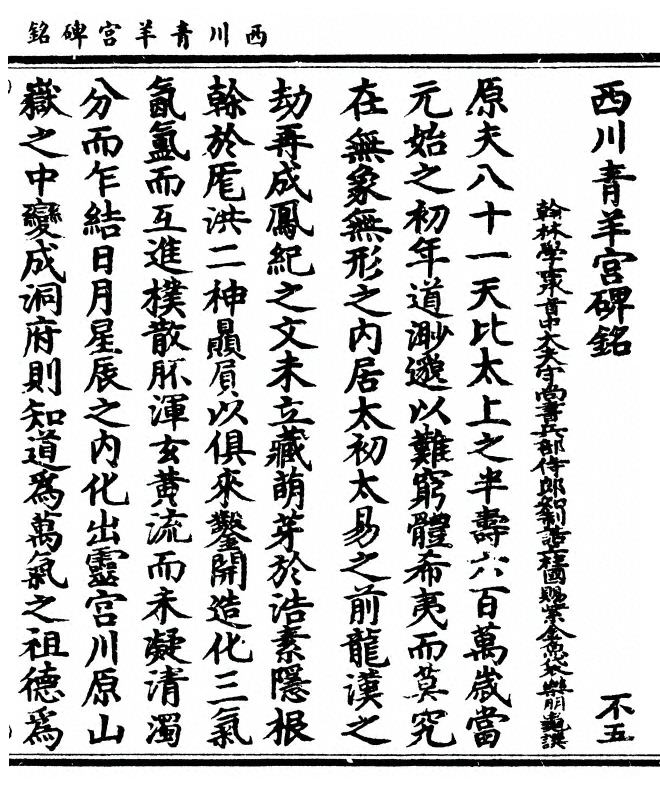 西川青羊宮碑銘
西川青羊宮碑銘
不五
翰林學士承旨中大夫守尚書兵部侍郎知制誥上柱國賜紫金魚袋樂朋龜撰
原夫八十一天比太上之半壽六百萬歲當
元始之初年道渺邈以難窮體希夷而莫究
在無象無形之內居太初太易之前龍漢之
劫再成鳳紀之文未立藏萌芽於浩素隱根
榦於厖洪二神贔屓以俱來鑿開造化三氣
氤氳而互進樸散胚渾玄黄流而未凝清濁
分而乍結日月星辰之內化出靈宮川原山
嶽之中變成洞府則知道爲萬氣之祖德爲